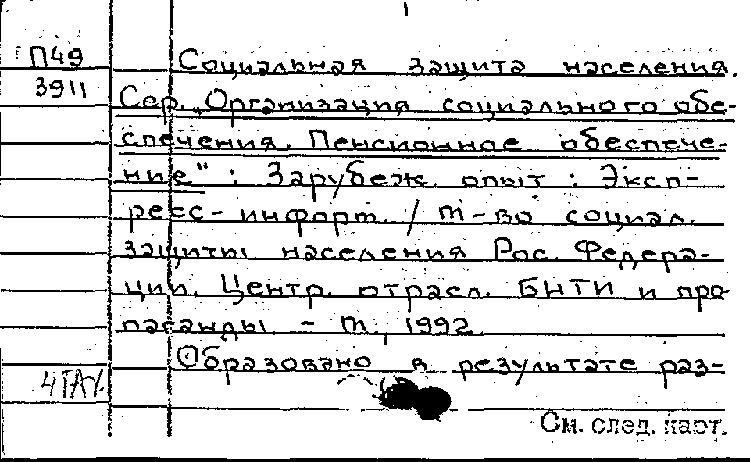 П49
3911
Социальная защита населения.
Сер. „Организация социального обе-
спечения. Пенсионное обеспече-
ние" : Зарубеж. опыт : Эксп-
ресс-информ. / М-во социал.
защиты населения Рос. Федера-
ции. Центр. отрасл. БНТИ и про-
паганды. - М., 1992.
Образовано в результате раз-
См. след. карт.